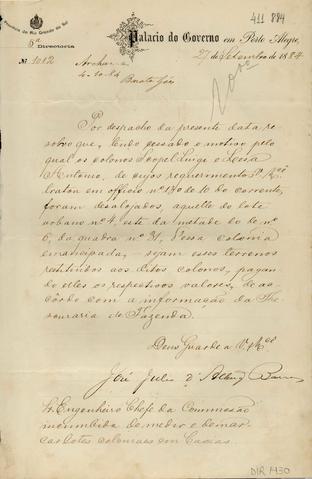 411 884
Provincia do Rio Grande do Sul
Palacio do Governo em Porto Alegre,
6ª
Directoria
27 de Setembro de 1884
Nº 1012
Archive
4-10-84
Por despacho da presente data, re-
solvo que, tendo cessado o motivo pelo
qual os colonos Stopel Luige e Lecia
Antonio, de cujos requerimentos V. Mcê
tratou em officio nº 130 de 10 do corrente,
foram desalojados, aquelle do lote
urbano nº 4, e este da metade do de nº
6, da quadra nº 31, d'essa colonia
emancipada, - sejam esses terrenos
restituidos aos ditos colonos, pagan-
do elles os respectivos valores, de ac-
côrdo com a informação da The-
souraria de Fazenda.
Deus Guarde a V. Mcê
José Julio d'Albuq Barros
Sr. Engenheiro Chefe da Commissão
incumbida de medir e demar-
car lotes coloniaes em Caxias.
DIR 1430